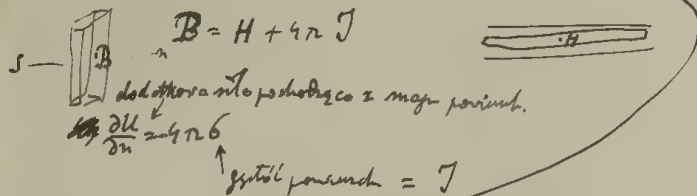 B = H + 4π J
S — B
H
dodatkowa siła pochodząca z magn. powierzch.
∂U/∂n = -4πσ
gęstość powierzch = J